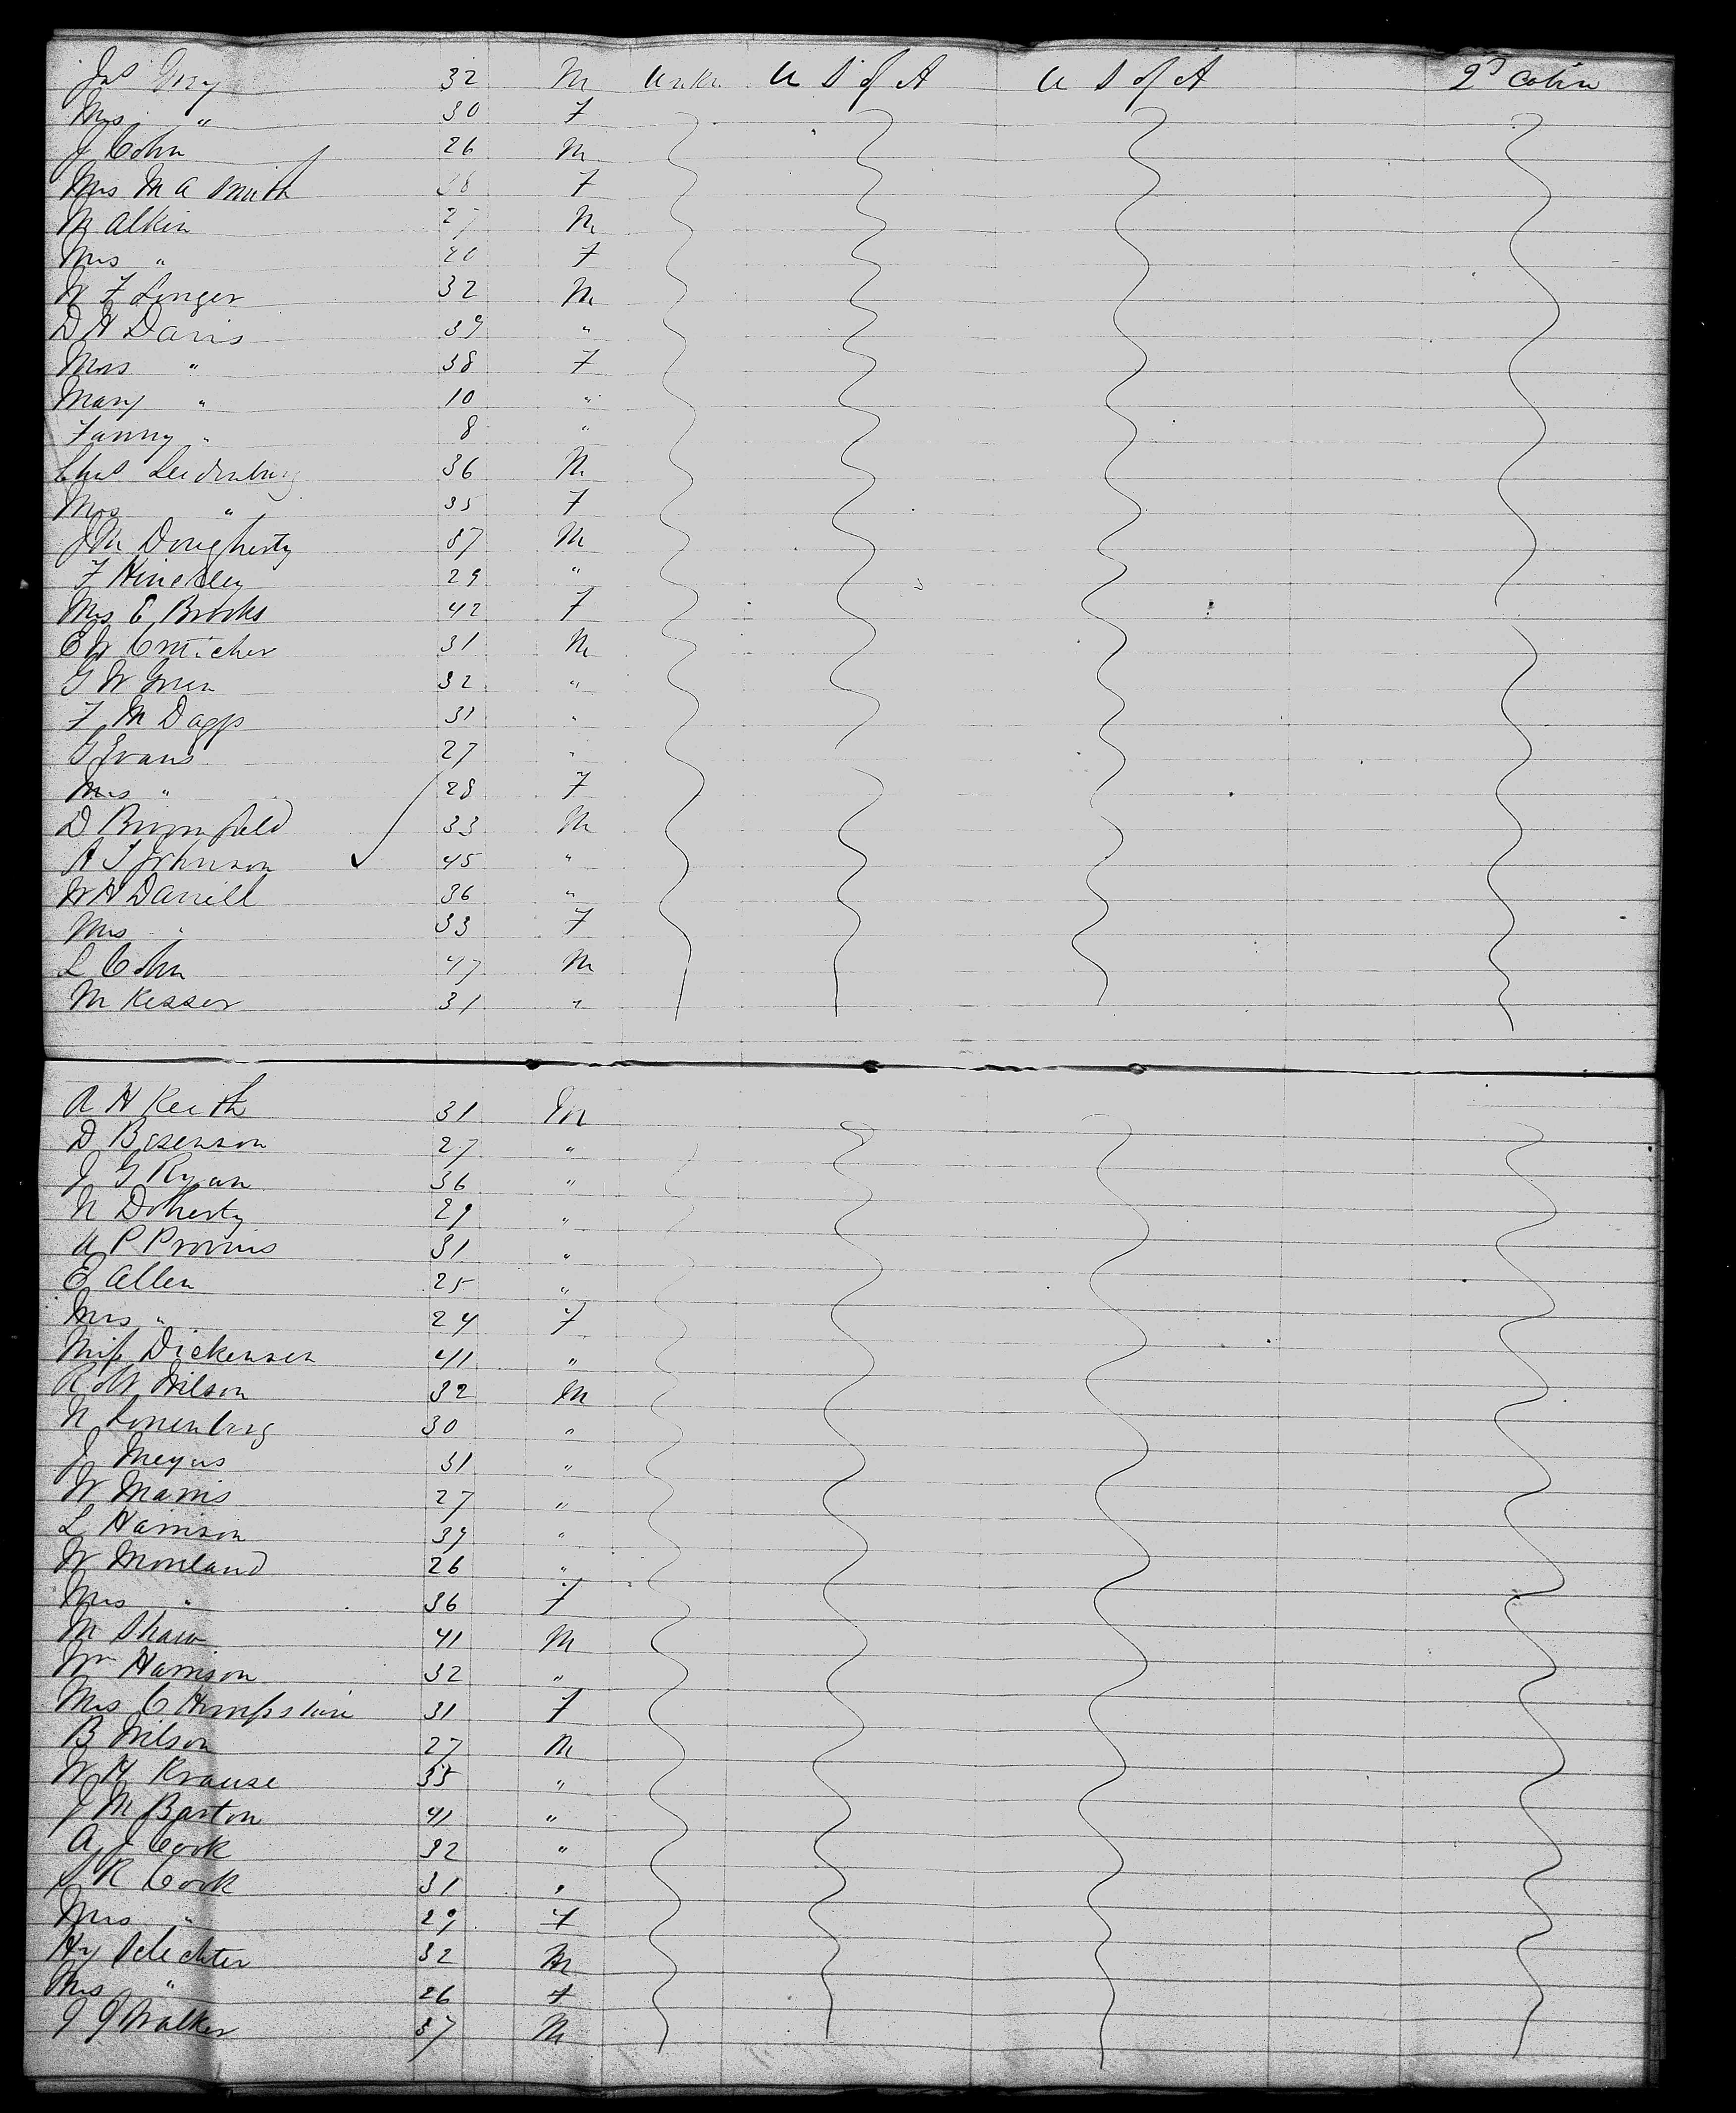 Jas Gray 32 M Unkn U S of A U S of A 2d Cabin
Mrs " 30 F
J Cohn 26 M
Mrs M A Smith 38 F
M Alkin 27 M
Mrs " 20 F
W F Linger 32 M
D H Davis 39 "
Mrs " 38 F
Mary " 10 "
Fanny " 8 "
Chas Leidenburg 36 M
Mrs " 35 F
J M Dougherty 37 M
F Hinckley 29 "
Mrs E Brooks 42 F
E W 31 M
G W Green 32 "
F M Dagg 31 "
G Evans 27 "
Mrs " 28 F
D Broomfield 33 M
A S Johnson 45 "
W H Darrell 36 "
Mrs " 33 F
L Cohn 47 M
M Kesser 31 "
A H Keith 31 M
D Besenson 27 "
J G Ryan 36 "
N Doherty 29 "
A P Provins 31 "
E Allen 25 "
Mrs " 24 F
Miss Dickensen 41 "
Robt Wilson 32 M
N Sonenburg 30 "
J Meyus 31 "
W Marris 27 "
L Harrison 39 "
W Moreland 26 "
Mrs " 36 F
M Shaw 41 M
Wm Harrison 32 "
Mrs C 31 F
B Wilson 27 M
W H Krause 35 "
J M Barton 41 "
A J Cook 32 "
S R Cook 31 "
Mrs " 29 F
Hy Slechter 32 M
Mrs " 26 F
J J Walker 37 M